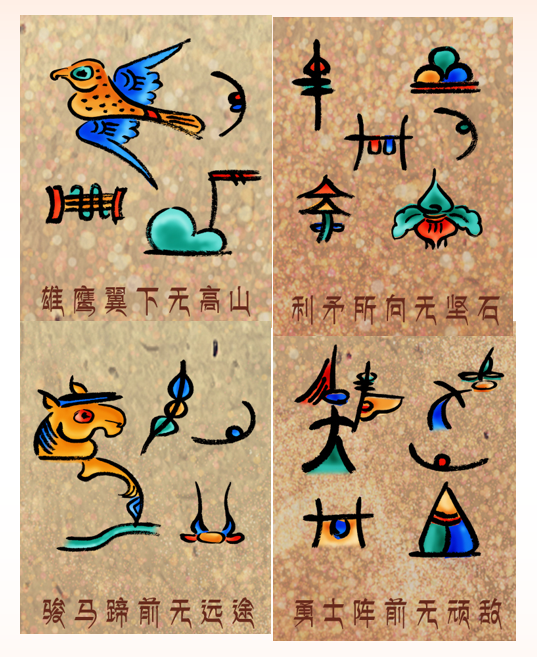 雄鹰翼下无高山
利矛所向无坚石
骏马蹄前无远途
勇士阵前无顽敌